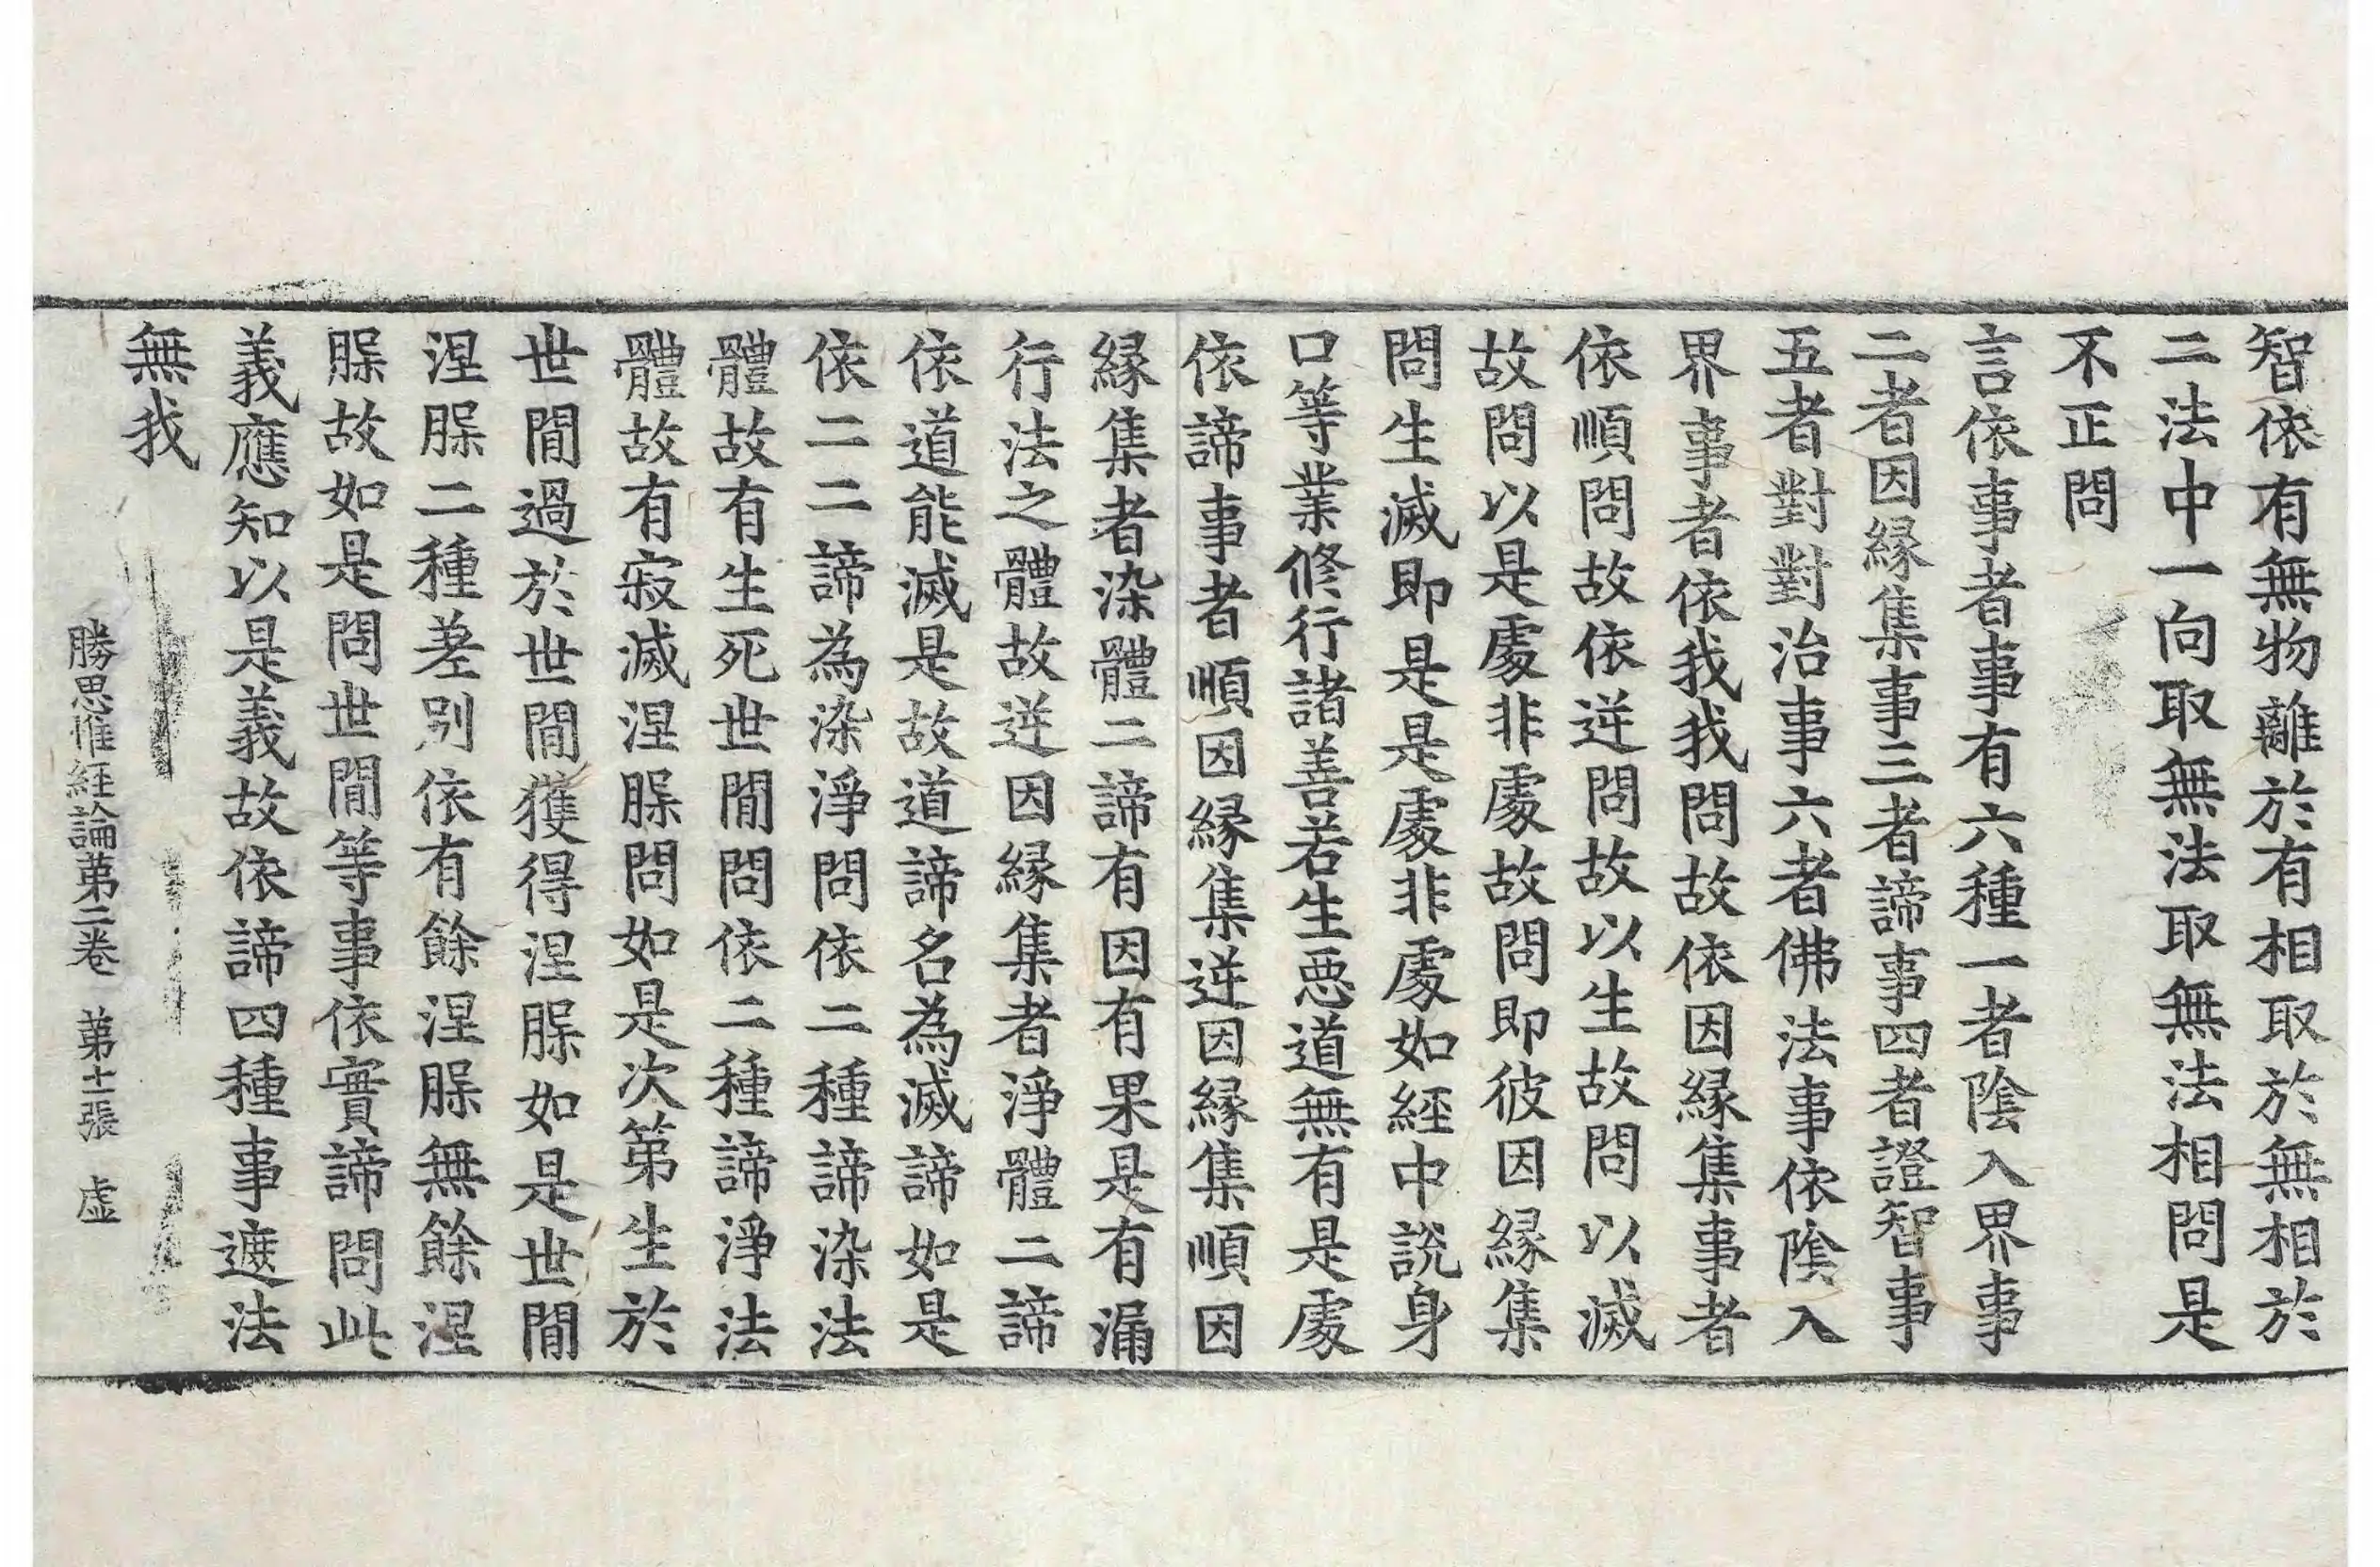 智依有無物離於有相取於無相於
二法中一向取無法取無法相問是
不正問
言依事者事有六種一者陰入界事
二者因縁集事三者諦事四者證智事
五者對對治事六者佛法事依陰入
界事者依我我問故依因縁集事者
依順問故依逆問故以生故問以滅
故問以是處非處故問即彼因縁集
問生滅即是是處非處如經中說身
口等業修行諸善若生惡道無有是處
依諦事者順因縁集逆因縁集順因
縁集者染體二諦有因有果是有漏
行法之體故逆因縁集者淨體二諦
依道能滅是故道諦名為滅諦如是
依二二諦為染淨問依二種諦染法
體故有生死世間問依二種諦淨法
體故有寂滅涅槃問如是次第生於
世間過於世間獲得涅槃如是世間
涅槃二種差別依有餘涅槃無餘涅
槃故如是問世間等事依實諦問此
義應知以是義故依諦四種事遮法
無我
勝思惟經論第二卷 第十二張 虛